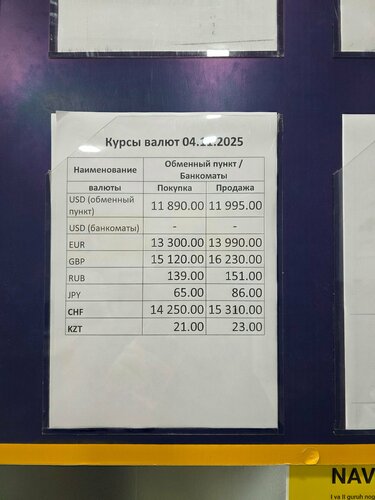 Курсы валют 04.11.2025
Наименование валюты Обменный пункт / Банкоматы
Покупка Продажа
USD (обменный пункт) 11 890.00 11 995.00
USD (банкоматы) - -
EUR 13 300.00 13 990.00
GBP 15 120.00 16 230.00
RUB 139.00 151.00
JPY 65.00 86.00
CHF 14 250.00 15 310.00
KZT 21.00 23.00
NAV
I va II guruh nog